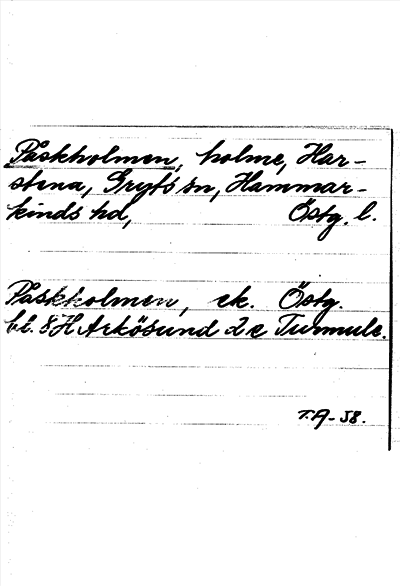 Påskholmen, holme, Har-
stena, Gryts sn, Hammar-
kinds hd, Östg. l.
Påskholmen, ek. Östg.
bl. 8 H Arkösund 2 e Turmule.
T.A-58.